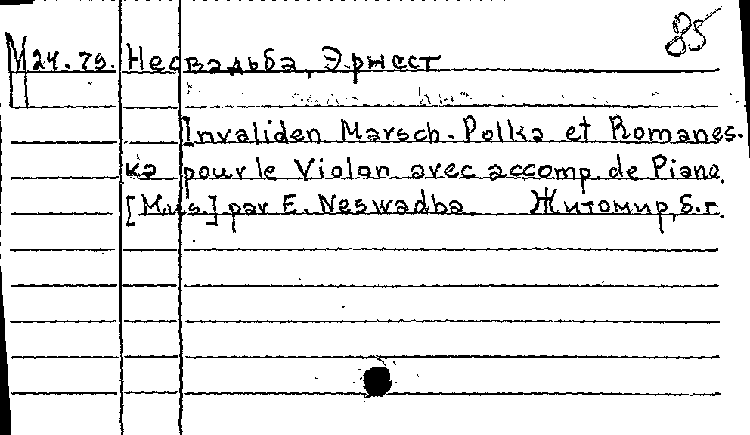 85
М 24.79. Несвадьба, Эрнест
Invaliden Marsch-Polka et Romanes-
ka pour le Violon avec accomp. de Piano.
[Mus.] par E. Neswadba. Житомир, б.г.